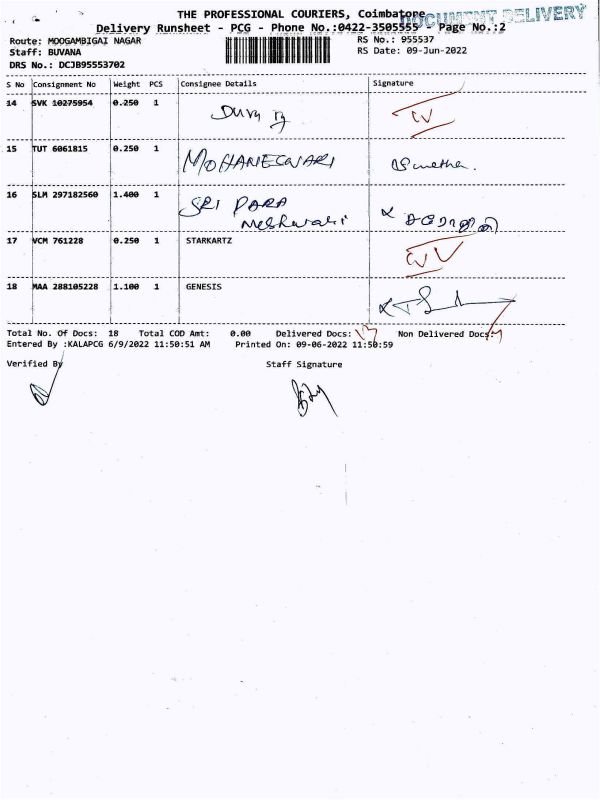 THE PROFESSIONAL COURIERS, Coimbatore
DOCUMENT DELIVERY
Delivery Runsheet - PCG - Phone No.:0422-3505555 Page No.:2
Route: MOOGAMBIGAI NAGAR RS No.: 955537
Staff: BUVANA RS Date: 09-Jun-2022
DRS No.: DCJB95553702
S No Consignment No Weight PCS Consignee Details Signature
14 SVK 10275954 0.250 1
15 TUT 6061815 0.250 1 MOHANESWARI
16 SLM 297182560 1.400 1 SRI PARA
Meshwari
17 VCM 761228 0.250 1 STARKARTZ
18 MAA 288105228 1.100 1 GENESIS
Total No. Of Docs: 18 Total COD Amt: 0.00 Delivered Docs: Non Delivered Docs:
Entered By :KALAPCG 6/9/2022 11:50:51 AM Printed On: 09-06-2022 11:50:59
Verified By Staff Signature